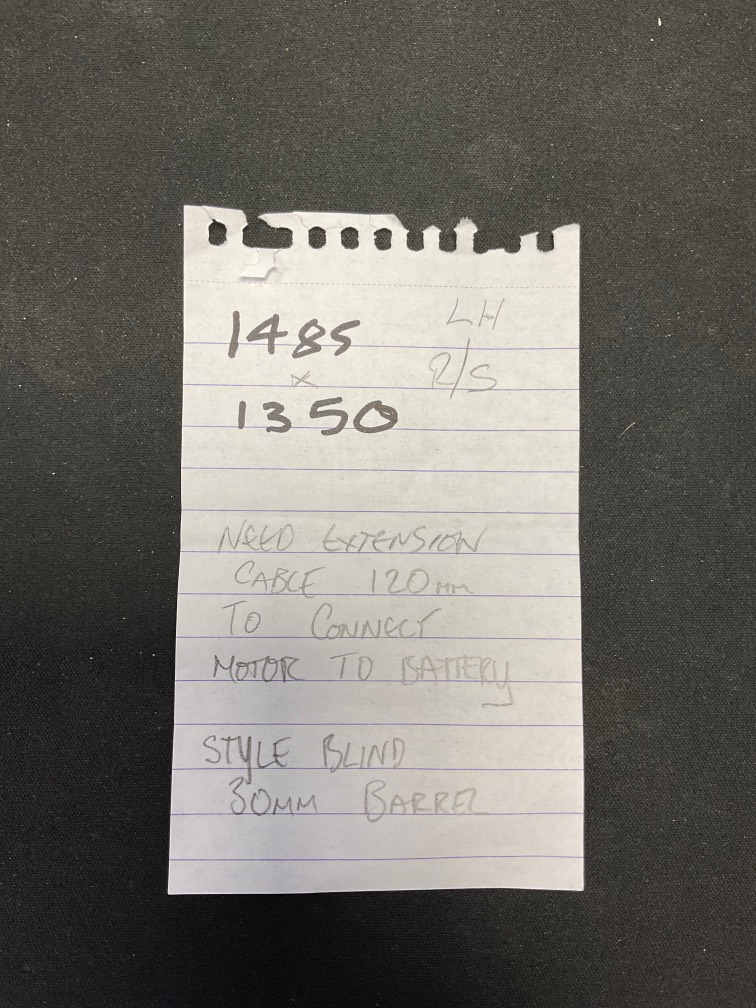 1485
×
1350
LH
R/S
NEED EXTENSION
CABLE 120mm
TO CONNECT
MOTOR TO BATTERY
STYLE BLIND
30MM BARREL